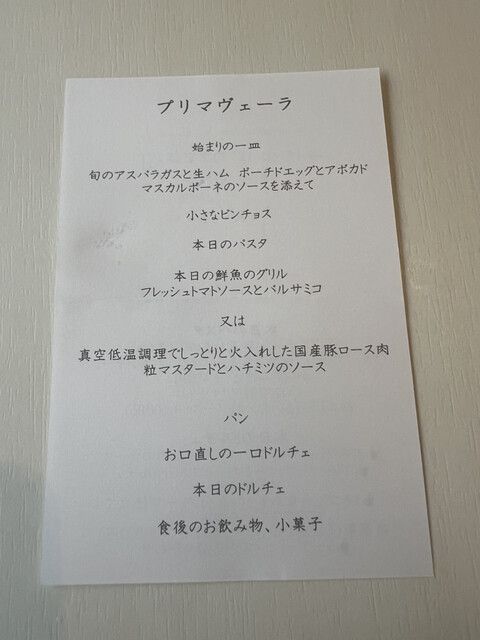 プリマヴェーラ
始まりの一皿
旬のアスパラガスと生ハム ポーチドエッグとアボカド
マスカルポーネのソースを添えて
小さなピンチョス
本日のパスタ
本日の鮮魚のグリル
フレッシュトマトソースとバルサミコ
又は
真空低温調理でしっとりと火入れした国産豚ロース肉
粒マスタードとハチミツのソース
パン
お口直しの一口ドルチェ
本日のドルチェ
食後のお飲み物、小菓子